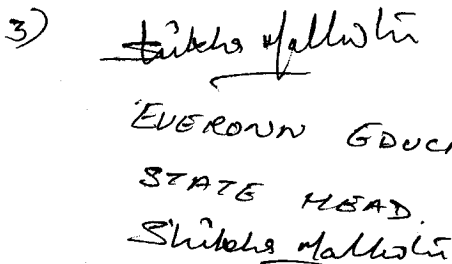 3) Shikha Malhotra
EVERONN EDUCA
STATE HEAD.
Shikha Malhotra